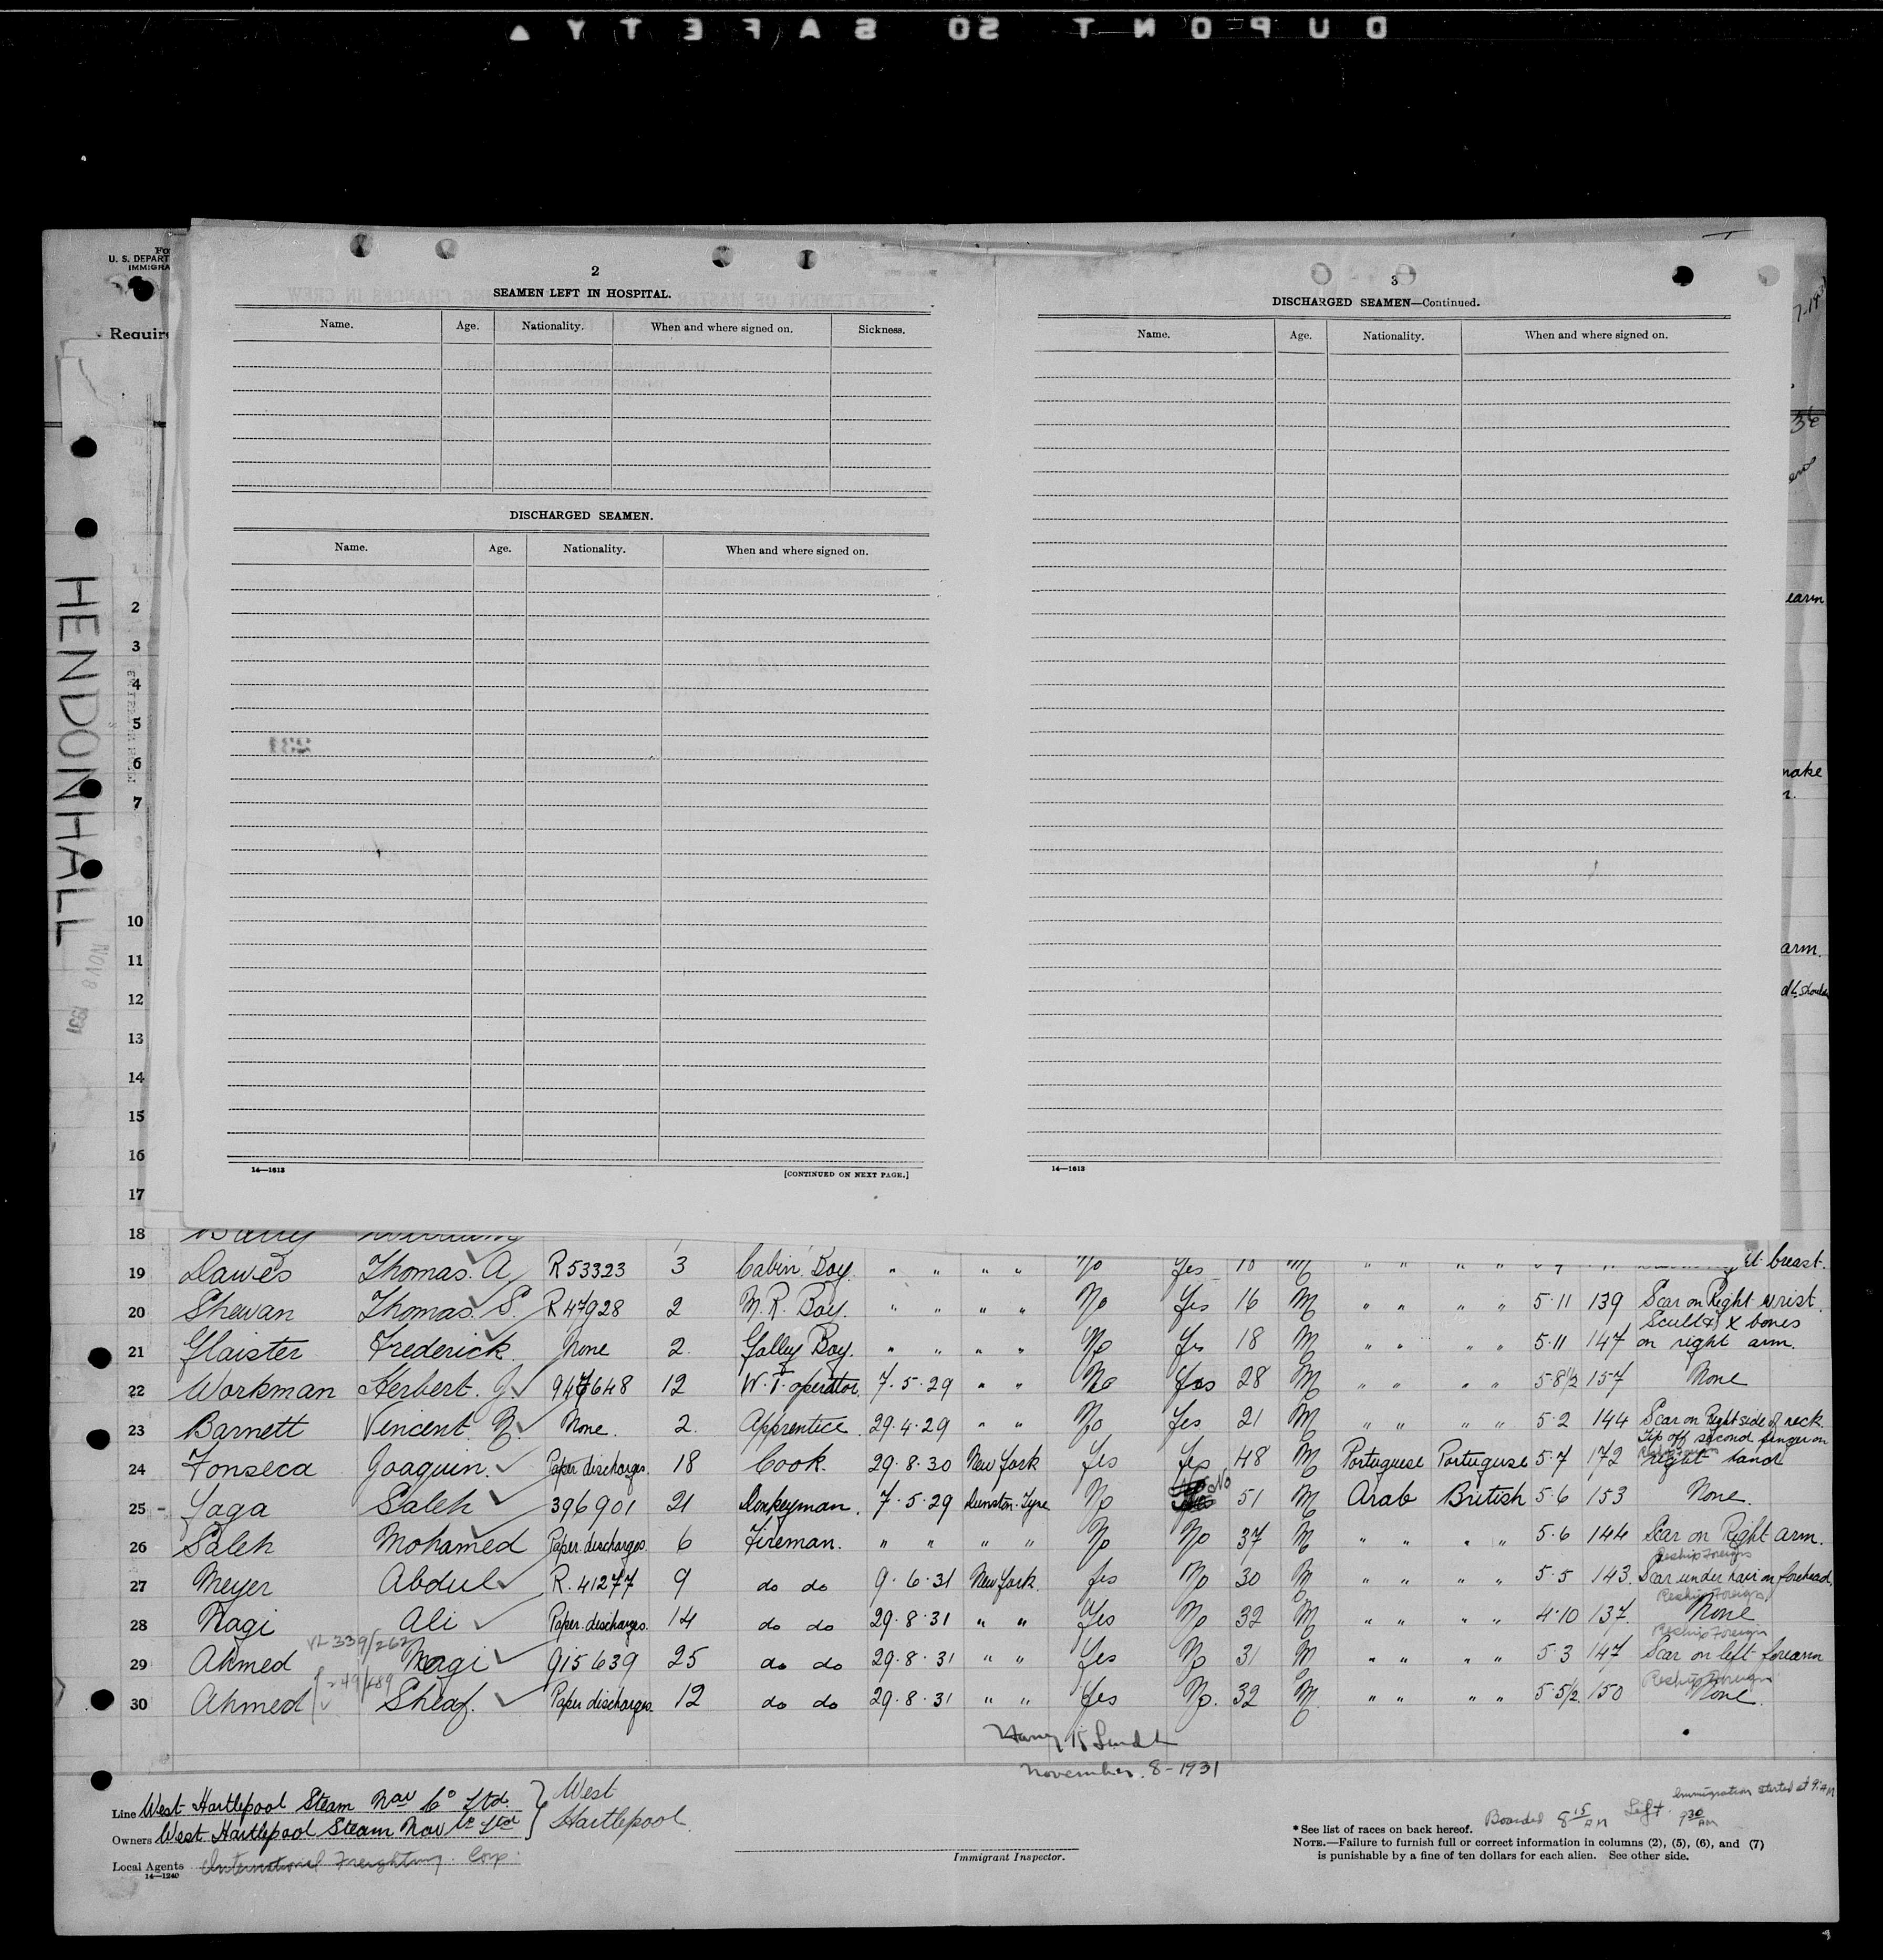 DUPONT SO SAFETY
U. S. DEPART
IMMIGRA
Require
HENDONHALL
NOV 8 1931
2
SEAMEN LEFT IN HOSPITAL.
Name. Age. Nationality. When and where signed on. Sickness.
DISCHARGED SEAMEN.
Name. Age. Nationality. When and where signed on.
14—1613 [CONTINUED ON NEXT PAGE.]
3
DISCHARGED SEAMEN—Continued.
Name. Age. Nationality. When and where signed on.
14—1613
earm
arm.
2
3
4
5
6
7
10
11
12
13
14
15
16
17
18
19 Dawes Thomas. A. R 53323 3 Cabin Boy. " " " " No Yes M " " " " breast.
20 Shewan Thomas. S. R 47928 2 M. R. Boy. " " " " No Yes 16 M " " " " 5·11 139 Scar on Right wrist.
21 Glaister Frederick. None 2. Galley Boy. " " " " No Yes 18 M " " " " 5·11 147 Scull & X bones on right arm.
22 Workman Herbert. J. 947648 12 W. T. operator. 7·5·29 " " No Yes 28 M " " " " 5·8½ 157 None
23 Barnett Vincent. None. 2. Apprentice. 29·4·29 " " No Yes 21 M " " " " 5·2 144 Scar on Right side of neck.
24 Fonseca Joaquin. Paper discharges. 18 Cook. 29·8·30 New York Yes Yes 48 M Portuguese Portuguese 5·7 172 Tip off second finger on right hand
25 - Yaga Saleh 396901 21 Donkeyman. 7·5·29 Dunston-Tyne No No 51 M Arab British 5·6 153 None.
26 Saleh Mohamed Paper discharges. 6 Fireman. " " " " No No 37 M " " " " 5·6 144 Scar on Right arm.
27 Meyer Abdul R. 41277 9 do do 9·6·31 New York. Yes No 30 M " " " " 5·5 143. Reship Foreign Scar under hair on forehead.
28 Nagi Ali Paper discharges. 14 do do 29·8·31 " " Yes No 32 M " " " " 4·10 137. Reship Foreign None
29 Ahmed Nagi 915639 25 do do 29·8·31 " " Yes No 31 M " " " " 5·3 147 Reship Foreign Scar on left forearm
30 Ahmed Sheaf. Paper discharges. 12 do do 29·8·31 " " Yes No. 32 M " " " " 5·5½ 150 Reship Foreign None.
November. 8 - 1931
Line West Hartlepool Steam Nav Co Ltd. } West Hartlepool.
Owners West Hartlepool Steam Nav Co Ltd
Local Agents International Freighting Corp:
14—1240
Immigrant Inspector.
Immigration started at 9: AM
Boarded 8 15 AM Left 9 30 AM
* See list of races on back hereof.
NOTE.—Failure to furnish full or correct information in columns (2), (5), (6), and (7)
is punishable by a fine of ten dollars for each alien. See other side.